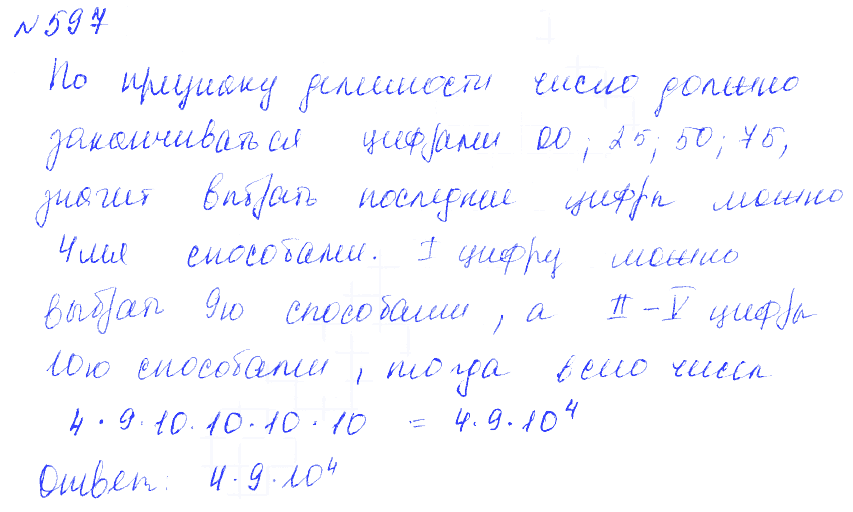 №597
По признаку делимости число должно
заканчиваться цифрами 00; 25; 50; 75,
значит выбрать последние цифры можно
4мя способами. I цифру можно
выбрать 9ю способами, а II – V цифры
10ю способами, тогда всего чисел
4 · 9 · 10 · 10 · 10 · 10 = 4 · 9 · 10⁴
Ответ: 4 · 9 · 10⁴